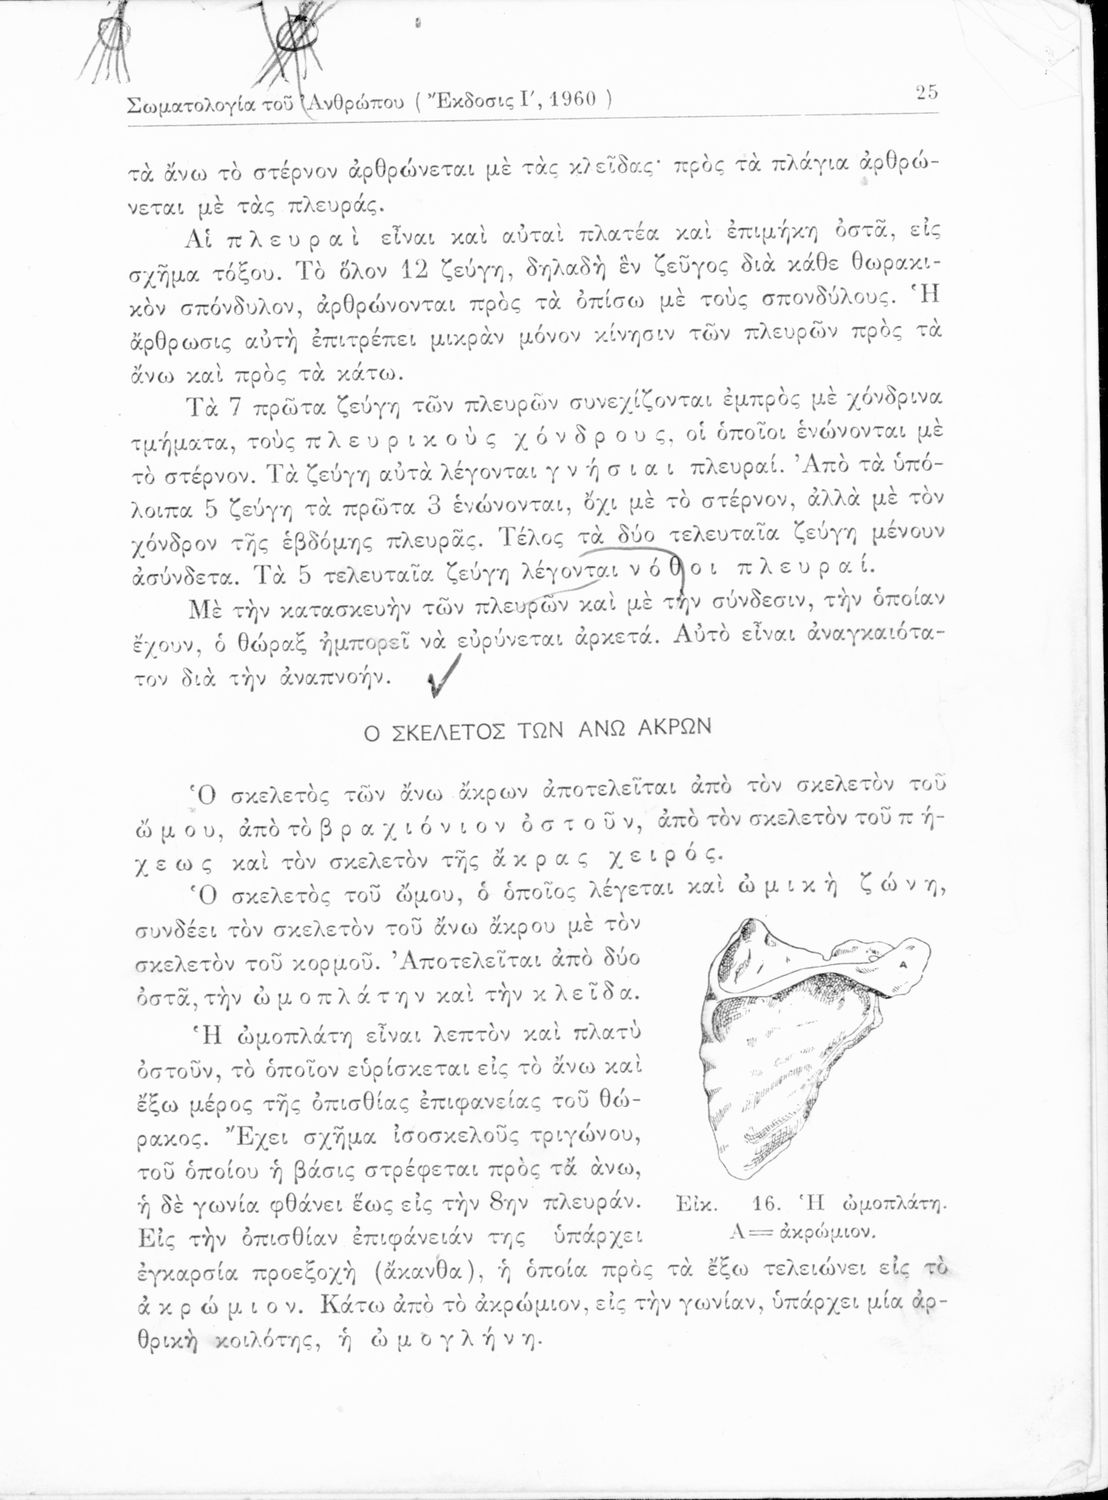 Σωματολογία τοῦ Ἀνθρώπου ( Ἔκδοσις Ι′, 1960 )
25
τὰ ἄνω τὸ στέρνον ἀρθρώνεται μὲ τὰς κλεῖδας· πρὸς τὰ πλάγια ἀρθρώ-
νεται μὲ τὰς πλευράς.
Αἱ πλευραὶ εἶναι καὶ αὐταὶ πλατέα καὶ ἐπιμήκη ὀστᾶ, εἰς
σχῆμα τόξου. Τὸ ὅλον 12 ζεύγη, δηλαδὴ ἓν ζεῦγος διὰ κάθε θωρακι-
κὸν σπόνδυλον, ἀρθρώνονται πρὸς τὰ ὀπίσω μὲ τοὺς σπονδύλους. Ἡ
ἄρθρωσις αὐτὴ ἐπιτρέπει μικρὰν μόνον κίνησιν τῶν πλευρῶν πρὸς τὰ
ἄνω καὶ πρὸς τὰ κάτω.
Τὰ 7 πρῶτα ζεύγη τῶν πλευρῶν συνεχίζονται ἐμπρὸς μὲ χόνδρινα
τμήματα, τοὺς πλευρικοὺς χόνδρους, οἱ ὁποῖοι ἑνώνονται μὲ
τὸ στέρνον. Τὰ ζεύγη αὐτὰ λέγονται γνήσιαι πλευραί. Ἀπὸ τὰ ὑπό-
λοιπα 5 ζεύγη τὰ πρῶτα 3 ἑνώνονται, ὄχι μὲ τὸ στέρνον, ἀλλὰ μὲ τὸν
χόνδρον τῆς ἑβδόμης πλευρᾶς. Τέλος τὰ δύο τελευταῖα ζεύγη μένουν
ἀσύνδετα. Τὰ 5 τελευταῖα ζεύγη λέγονται νόθοι πλευραί.
Μὲ τὴν κατασκευὴν τῶν πλευρῶν καὶ μὲ τὴν σύνδεσιν, τὴν ὁποίαν
ἔχουν, ὁ θώραξ ἠμπορεῖ νὰ εὐρύνεται ἀρκετά. Αὐτὸ εἶναι ἀναγκαιότα-
τον διὰ τὴν ἀναπνοήν.
Ο ΣΚΕΛΕΤΟΣ ΤΩΝ ΑΝΩ ΑΚΡΩΝ
Ὁ σκελετὸς τῶν ἄνω ἄκρων ἀποτελεῖται ἀπὸ τὸν σκελετὸν τοῦ
ὤμου, ἀπὸ τὸ βραχιόνιον ὀστοῦν, ἀπὸ τὸν σκελετὸν τοῦ πή-
χεως καὶ τὸν σκελετὸν τῆς ἄκρας χειρός.
Ὁ σκελετὸς τοῦ ὤμου, ὁ ὁποῖος λέγεται καὶ ὠμικὴ ζώνη,
συνδέει τὸν σκελετὸν τοῦ ἄνω ἄκρου μὲ τὸν
σκελετὸν τοῦ κορμοῦ. Ἀποτελεῖται ἀπὸ δύο
ὀστᾶ, τὴν ὠμοπλάτην καὶ τὴν κλεῖδα.
Ἡ ὠμοπλάτη εἶναι λεπτὸν καὶ πλατὺ
ὀστοῦν, τὸ ὁποῖον εὑρίσκεται εἰς τὸ ἄνω καὶ
ἔξω μέρος τῆς ὀπισθίας ἐπιφανείας τοῦ θώ-
ρακος. Ἔχει σχῆμα ἰσοσκελοῦς τριγώνου,
τοῦ ὁποίου ἡ βάσις στρέφεται πρὸς τἄ ἀνω,
ἡ δὲ γωνία φθάνει ἕως εἰς τὴν 8ην πλευράν.
Εἰς τὴν ὀπισθίαν ἐπιφάνειάν της ὑπάρχει
ἐγκαρσία προεξοχὴ (ἄκανθα), ἡ ὁποία πρὸς τὰ ἔξω τελειώνει εἰς τὸ
ἀκρώμιον. Κάτω ἀπὸ τὸ ἀκρώμιον, εἰς τὴν γωνίαν, ὑπάρχει μία ἀρ-
θρικὴ κοιλότης, ἡ ὠμογλήνη.
A
Εἰκ. 16. Ἡ ὠμοπλάτη.
Α = ἀκρώμιον.